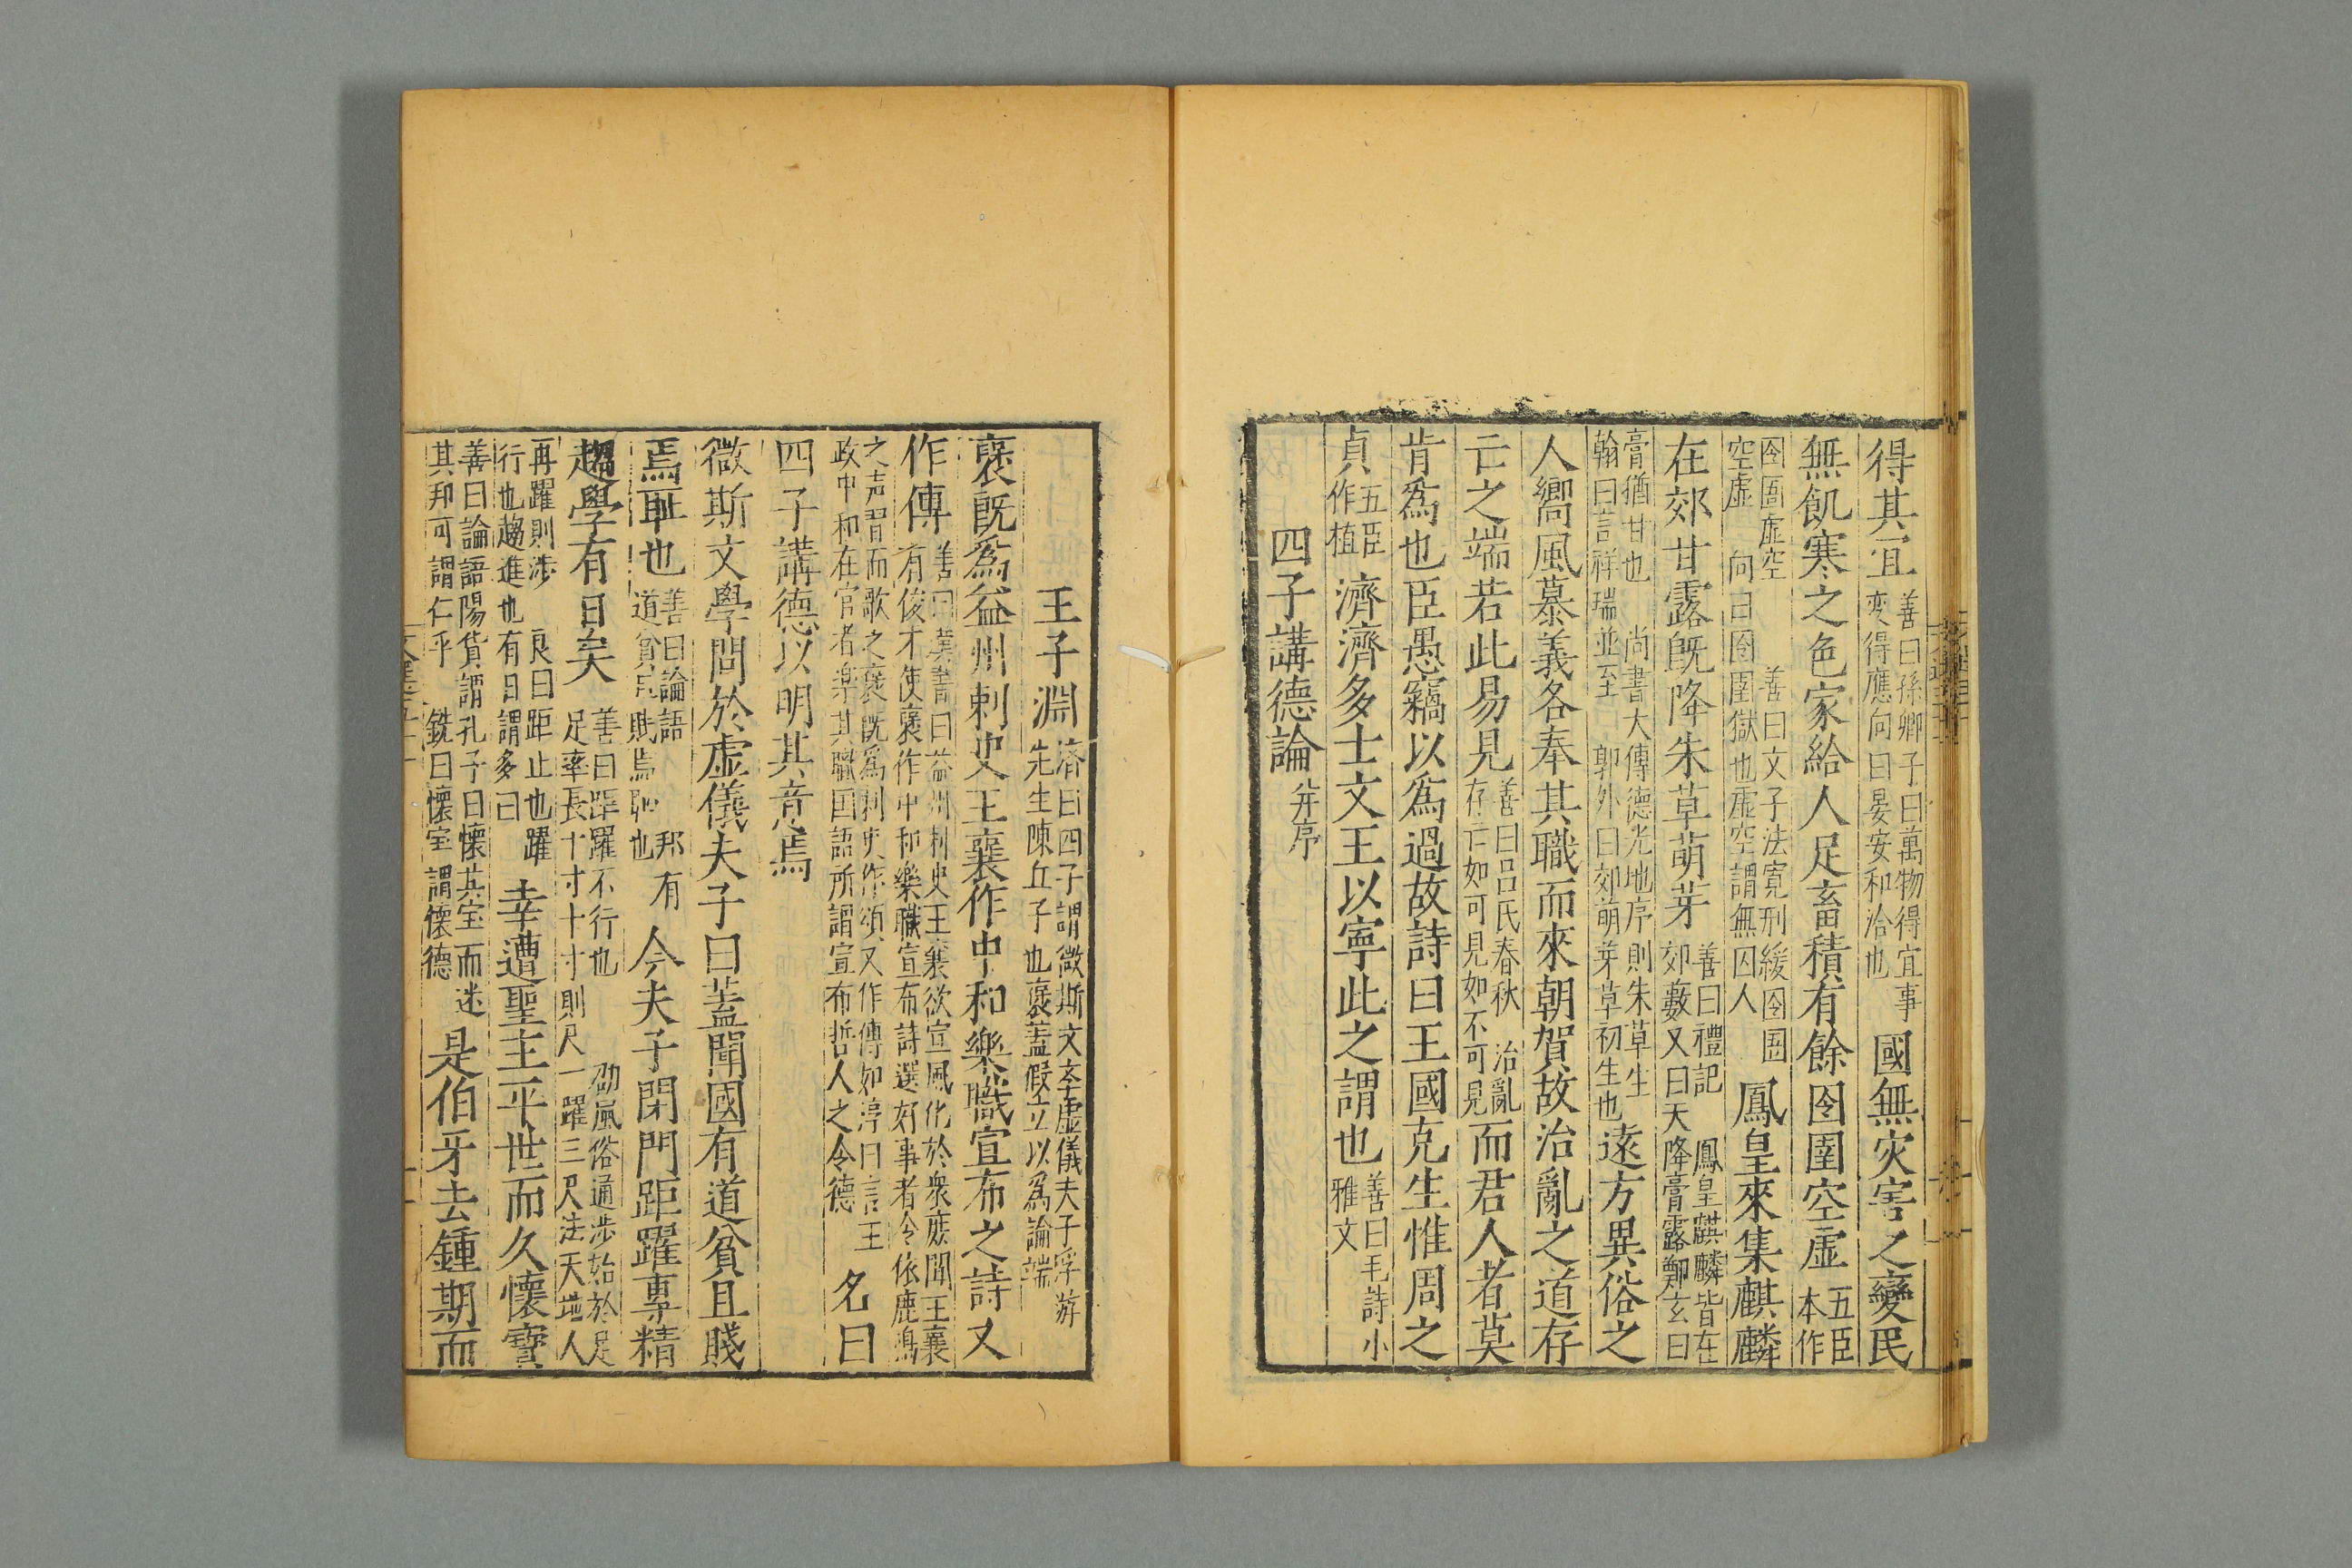 得其宜善曰孫卿子曰萬物得宜事変得應向曰晏安和洽也國無灾害之變民
無飢寒之色家給人足畜積有餘囹圄空虛五臣本作
囹圄虛空空虛善曰文子法寛刑緩囹圄向曰囹圄獄也虛空謂無囚人鳳皇來集麒麟
在郊甘露旣降朱草萌芽善曰禮記鳳皇麒麟皆在郊藪又曰天降膏露鄭玄曰
膏猶甘也尚書大傳德光地序則朱草生翰曰言祥瑞並至郭外曰郊萌芽草初生也遠方異俗之
人嚮風慕義各奉其職而來朝賀故治亂之道存
亡之端若此易見善曰呂氏春秋治亂存亡如可見如不可見而君人者莫
肯爲也臣愚竊以爲過故詩曰王國克生惟周之
貞五臣作植濟濟多士文王以寧此之謂也善曰毛詩小雅文
四子講德論并序
王子淵濟曰四子謂微斯文李虛儀夫子浮游先生陳丘子也襃蓋假立以爲論端
襃旣爲益州刺史王襄作中和樂職宣布之詩又
作傳善曰漢書曰益州刺史王襄欲宣風化於衆庶聞王襃有俊才使襃作中和樂職宣布詩選好事者令依鹿鳴
之声習而歌之襃旣爲刺史作頌又作傳如淳曰言王政中和在官者楽其職国語所謂宣布哲人之令德名曰
四子講德以明其意焉
微斯文學問於虛儀夫子曰蓋聞國有道貧且賤
焉耻也善曰論語邦有道貧且賎焉耻也今夫子閉門距躍專精
趨學有日矣善曰距躍不行也劭風俗通步始於足足率長十寸十寸則尺一躍三尺法天地人
再躍則步良曰距止也躍行也趨進也有日謂多曰幸遭聖主平世而久懷寶
善曰論語陽貨謂孔子曰懷其宝而迷其邦可謂仁乎銑曰懷宝謂懷德是伯牙去鍾期而